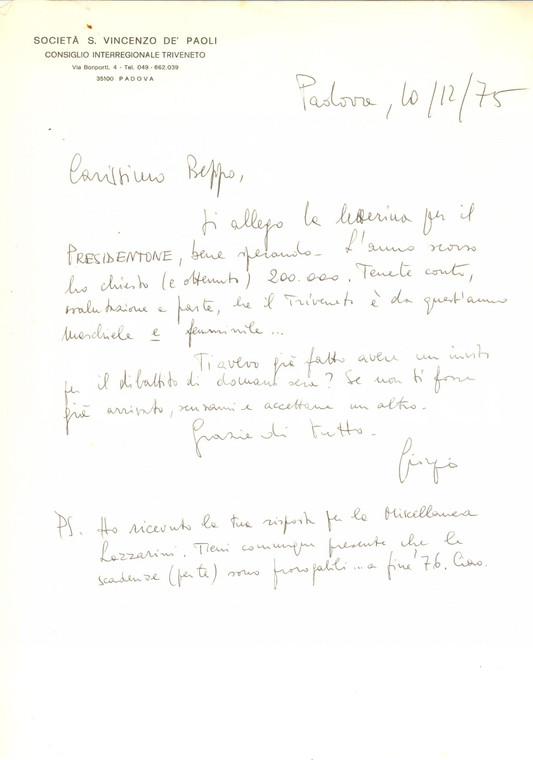 SOCIETÀ S. VINCENZO DE' PAOLI
CONSIGLIO INTERREGIONALE TRIVENETO
Via Bonporti, 4 - Tel. 049 - 662.039
35100 PADOVA
Padova, 10/12/75
Carissimo Beppo,
Ti allego la letterina per il
PRESIDENTONE, bene sperando. L'anno scorso
ho chiesto (e ottenuto) 200.000. Tenete conto,
svalutazione a parte, che il Triveneto è da quest'anno
maschile e femminile...
Ti avevo già fatto avere un invito
per il dibattito di domani sera? Se non ti fosse
già arrivato, scusami e accettane un altro.
Grazie di tutto.
Giorgio
PS. Ho ricevuto la tua risposta per la Miscellanea
Lazzarini. Tieni comunque presente che le
scadenze (per te) sono prorogabili... a fine '76. Ciao.